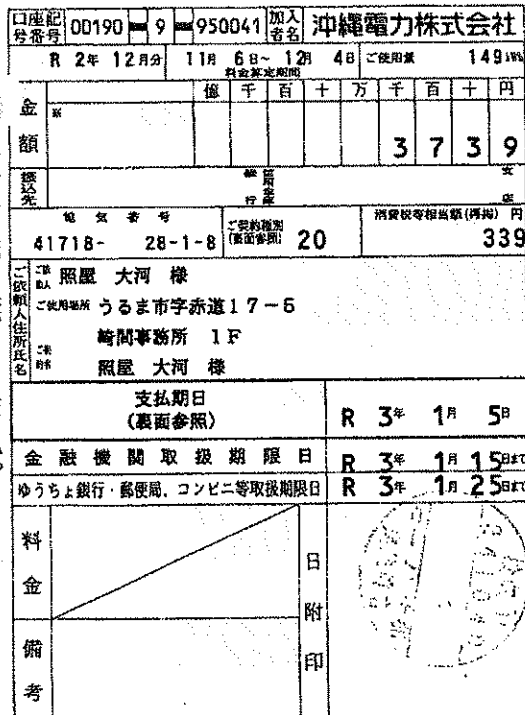 口座記号番号 00190 9 950041 加入者名 沖縄電力株式会社
R 2年 12月分 11月 6日~ 12月 4日 ご使用量 149kWh
料金算定期間
金額 億 千 百 十 万 千 百 十 円
3 7 3 9
振込先 銀行 支店
電気番号 ご契約種別(裏面参照) 20 消費税等相当額(再掲) 円
41718- 28-1-8 339
ご依頼人住所氏名
ご依頼人 照屋 大河 様
ご使用場所 うるま市字赤道17-6
崎間事務所 1F
ご契約者 照屋 大河 様
支払期日
(裏面参照) R 3年 1月 5日
金融機関取扱期限日 R 3年 1月 15日まで
ゆうちょ銀行・郵便局、コンビニ等取扱期限日 R 3年 1月 25日まで
料金
日附印
備考